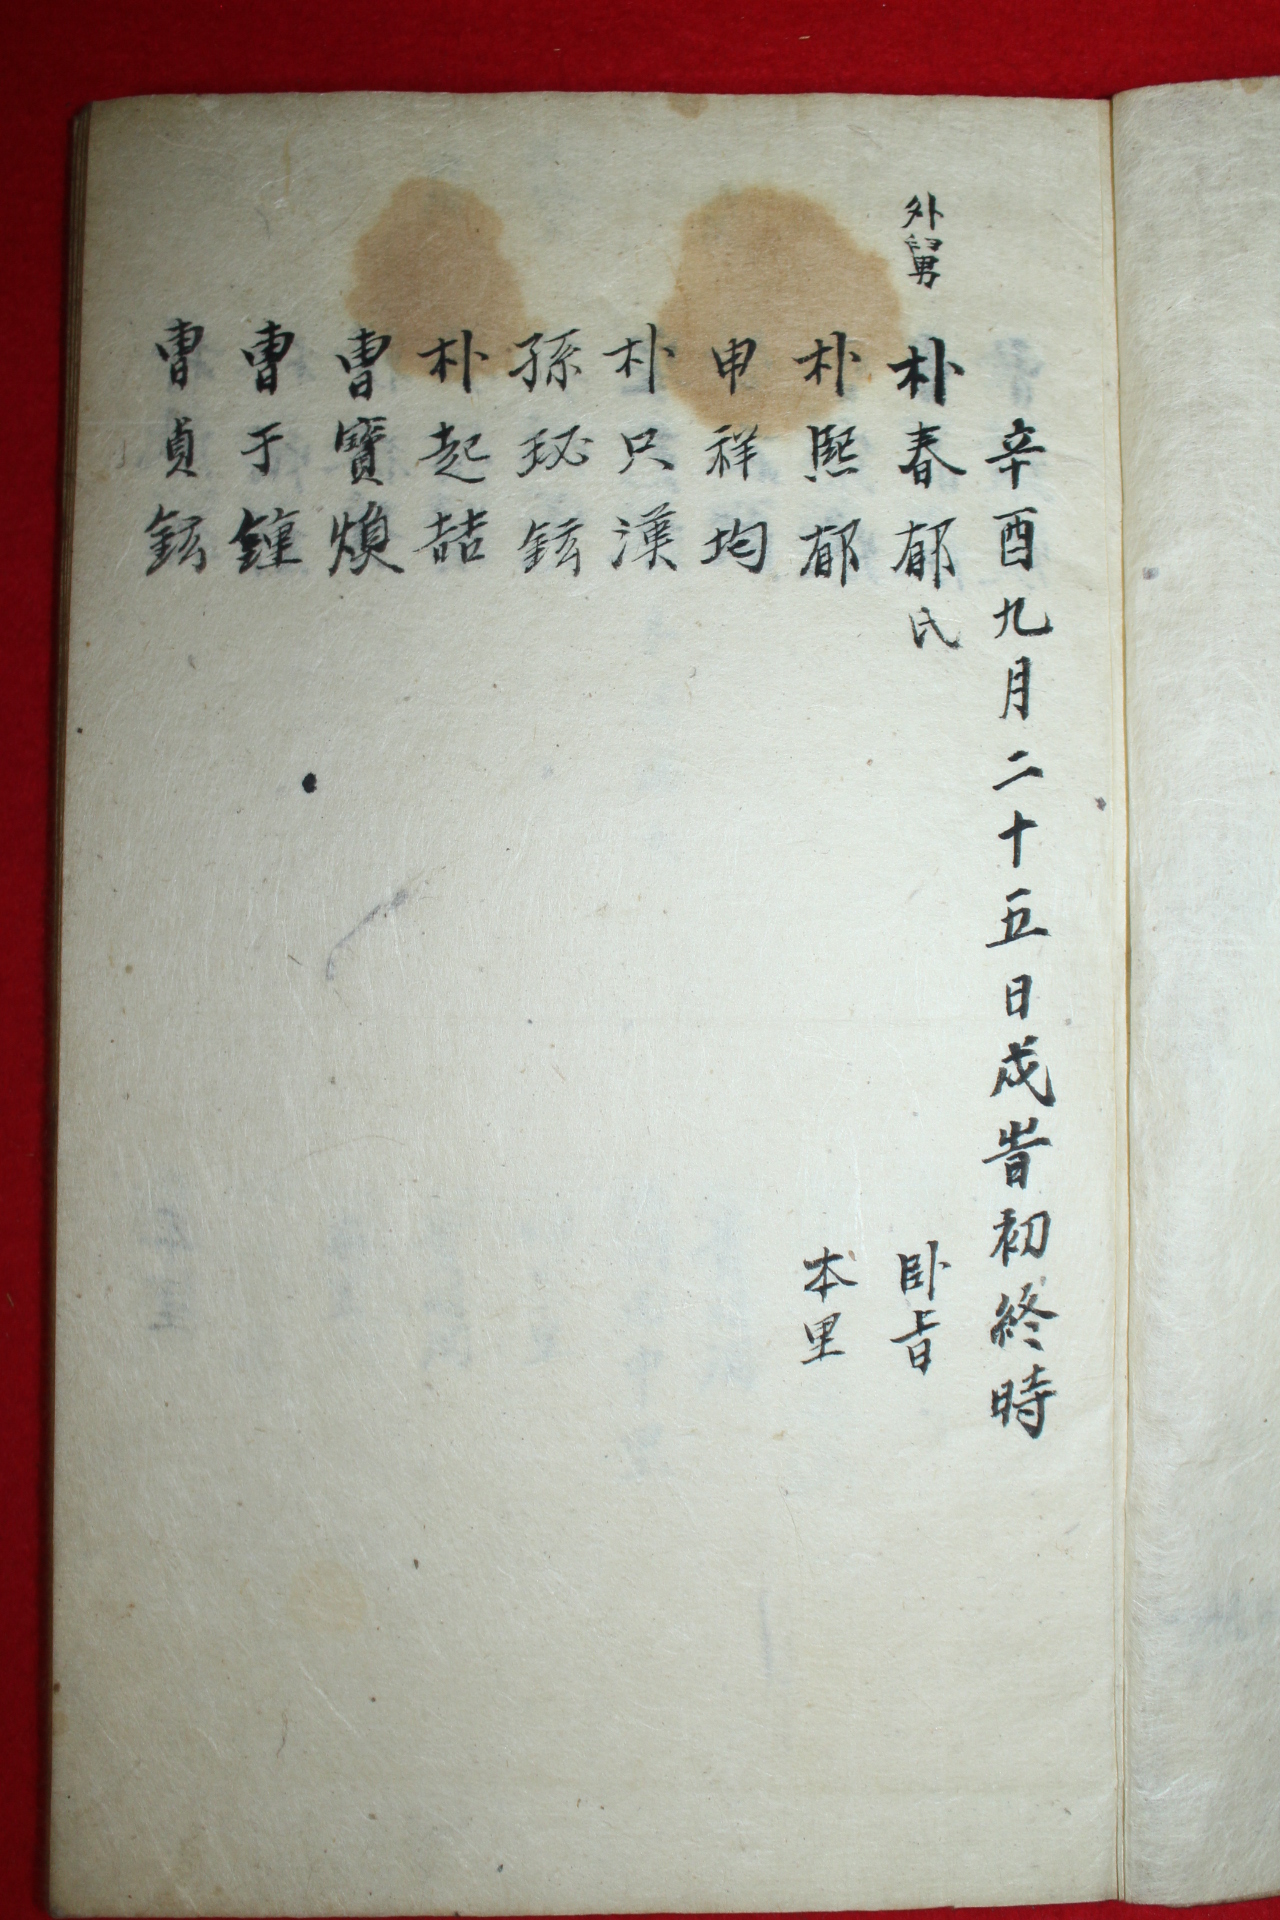 辛酉九月二十五日戌旹初終時
外舅 朴春郁氏 卧旹
朴熙郁 本里
申祥均
朴只漢
孫珌鉉
朴起喆
曺寶煥
曺于鍾
曺貞鉉